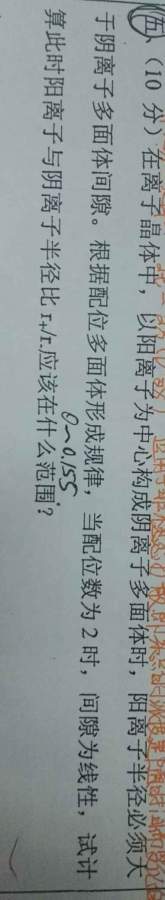 五、(10 分) 在离子晶体中，以阳离子为中心构成阴离子多面体时，阳离子半径必须大
于阴离子多面体间隙。根据配位多面体形成规律，当配位数为 2 时，间隙为线性，试计
0~0.155
算此时阳离子与阴离子半径比 r₊/r₋应该在什么范围?